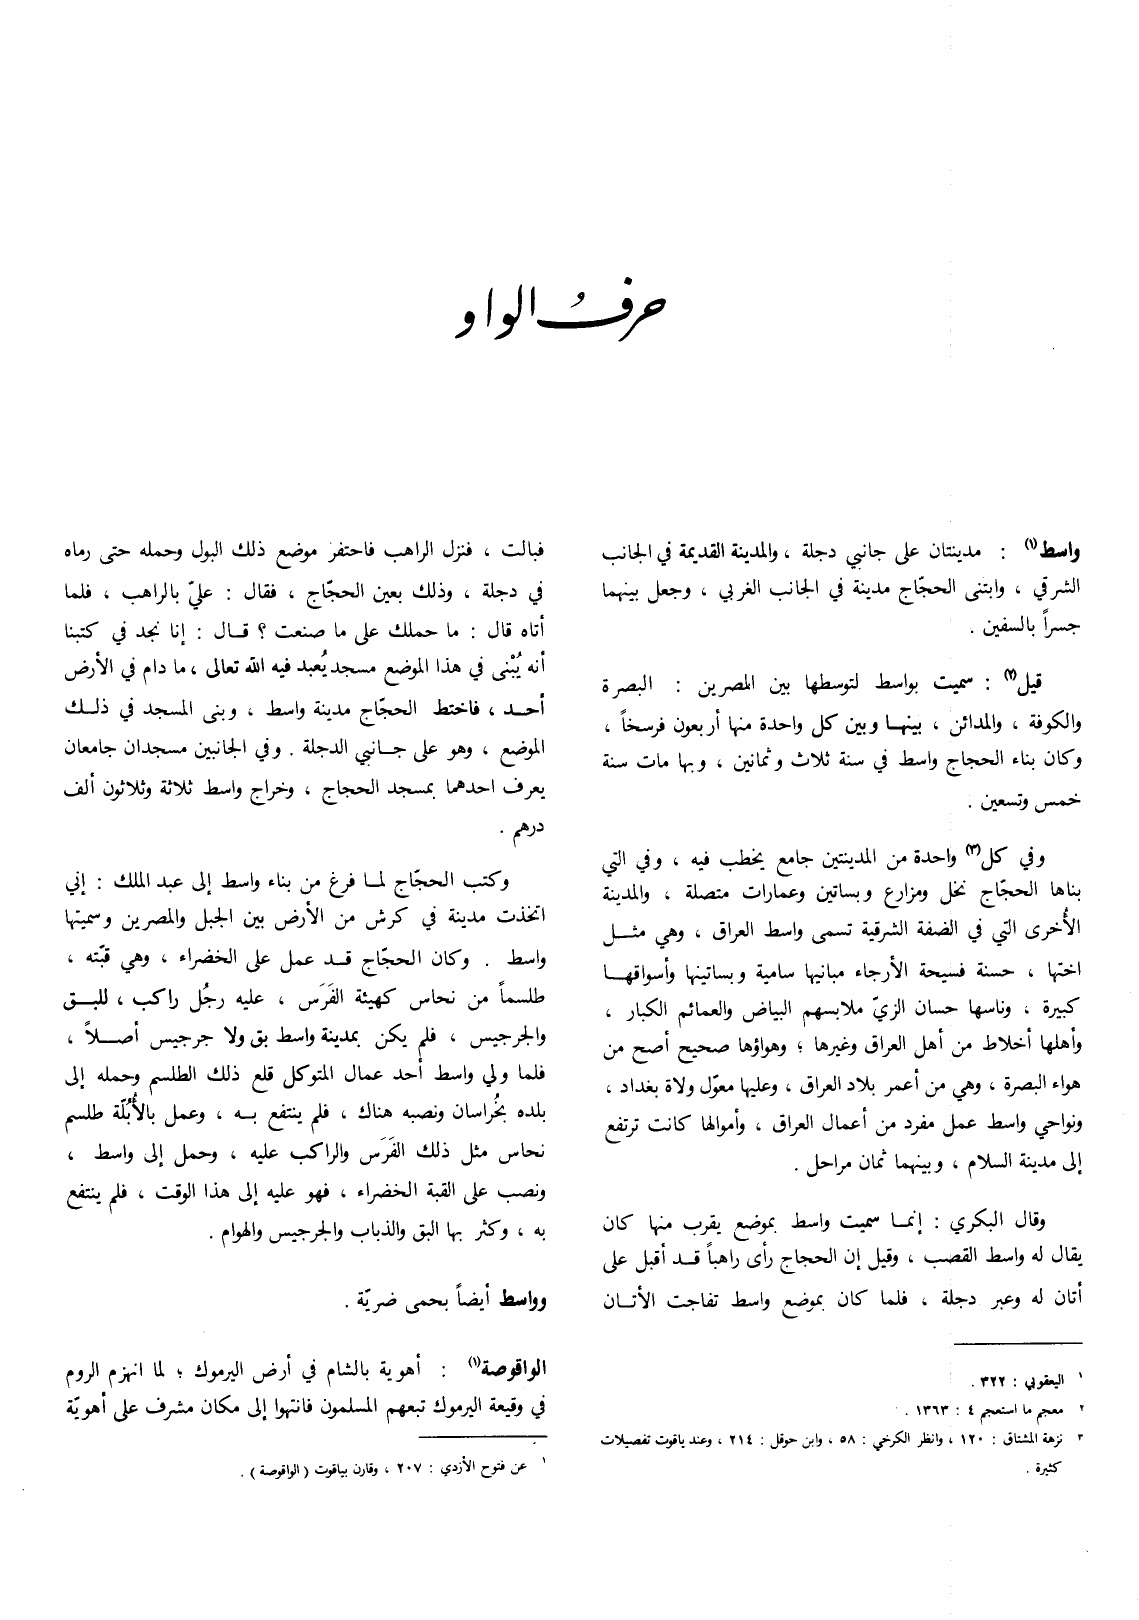 حرفُ الواو
واسط(١) : مدينتان على جانبي دجلة ، والمدينة القديمة في الجانب
الشرقي ، وابتنى الحجّاج مدينة في الجانب الغربي ، وجعل بينهما
جسراً بالسفين .
قيل(٢) : سميت بواسط لتوسطها بين المصرين : البصرة
والكوفة ، والمدائن ، بينها وبين كل واحدة منها أربعون فرسخاً ،
وكان بناء الحجاج واسط في سنة ثلاث وثمانين ، وبها مات سنة
خمس وتسعين .
وفي كل(٣) واحدة من المدينتين جامع يخطب فيه ، وفي التي
بناها الحجّاج نخل ومزارع وبساتين وعمارات متصلة ، والمدينة
الأُخرى التي في الضفة الشرقية تسمى واسط العراق ، وهي مثل
اختها ، حسنة فسيحة الأرجاء مبانيها سامية وبساتينها وأسواقها
كبيرة ، وناسها حسان الزيّ ملابسهم البياض والعمائم الكبار ،
وأهلها أخلاط من أهل العراق وغيرها ؛ وهواؤها صحيح أصح من
هواء البصرة ، وهي من أعمر بلاد العراق ، وعليها معوّل ولاة بغداد ،
ونواحي واسط عمل مفرد من أعمال العراق ، وأموالها كانت ترتفع
إلى مدينة السلام ، وبينهما ثمان مراحل .
وقال البكري : إنما سميت واسط بموضع يقرب منها كان
يقال له واسط القصب ، وقيل إن الحجاج رأى راهباً قد أقبل على
أتان له وعبر دجلة ، فلما كان بموضع واسط تفاجت الأتان
١ اليعقوبي : ٣٢٢ .
٢ معجم ما استعجم ٤ : ١٣٦٣ .
٣ نزهة المشتاق : ١٢٠ ، وانظر الكرخي : ٥٨ ، وابن حوقل : ٢١٤ ، وعند ياقوت تفصيلات
كثيرة .
فبالت ، فنزل الراهب فاحتفر موضع ذلك البول وحمله حتى رماه
في دجلة ، وذلك بعين الحجّاج ، فقال : عليّ بالراهب ، فلما
أتاه قال : ما حملك على ما صنعت ؟ قال : إنا نجد في كتبنا
أنه يُبْنى في هذا الموضع مسجد يُعبد فيه الله تعالى ، ما دام في الأرض
أحد ، فاختط الحجّاج مدينة واسط ، وبنى المسجد في ذلك
الموضع ، وهو على جانبي الدجلة . وفي الجانبين مسجدان جامعان
يعرف احدهما بمسجد الحجاج ، وخراج واسط ثلاثة وثلاثون ألف
درهم .
وكتب الحجّاج لما فرغ من بناء واسط إلى عبد الملك : إني
اتخذت مدينة في كرش من الأرض بين الجبل والمصرين وسميتها
واسط . وكان الحجّاج قد عمل على الخضراء ، وهي قبّته ،
طلسماً من نحاس كهيئة الفَرَس ، عليه رجُل راكب ، للبق
والجرجيس ، فلم يكن بمدينة واسط بق ولا جرجيس أصلاً ،
فلما ولي واسط أحد عمال المتوكل قلع ذلك الطلسم وحمله إلى
بلده بخُراسان ونصبه هناك ، فلم ينتفع به ، وعمل بالأُبُلّة طلسم
نحاس مثل ذلك الفَرَس والراكب عليه ، وحمل إلى واسط ،
ونصب على القبة الخضراء ، فهو عليه إلى هذا الوقت ، فلم ينتفع
به ، وكثر بها البق والذباب والجرجيس والهوام .
وواسط أيضاً بحمى ضريّة .
الواقوصة(١) : أهوية بالشام في أرض اليرموك ؛ لما انهزم الروم
في وقيعة اليرموك تبعهم المسلمون فانتهوا إلى مكان مشرف على أهويّة
١ عن فتوح الأزدي : ٢٠٧ ، وقارن بياقوت ( الواقوصة ) .